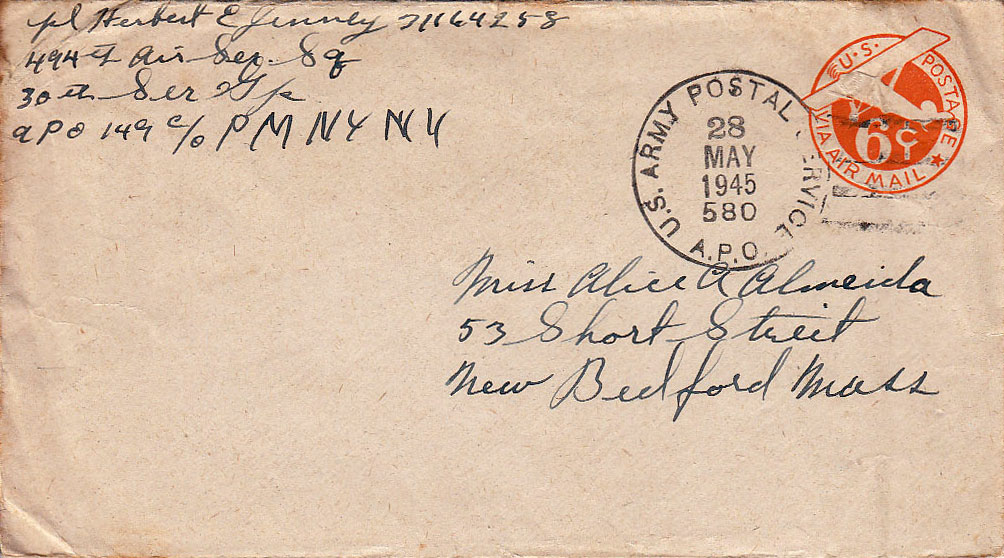 Herbert E Jenney 31164258
494th Air Ser. Sq
30th Ser Gp
APO 149 c/o P M NY NY
U.S. ARMY POSTAL SERVICE
28
MAY
1945
580
A.P.O.
U.S. POSTAGE
6¢
VIA AIR MAIL
Miss Alice A Almeida
53 Short Street
New Bedford Mass